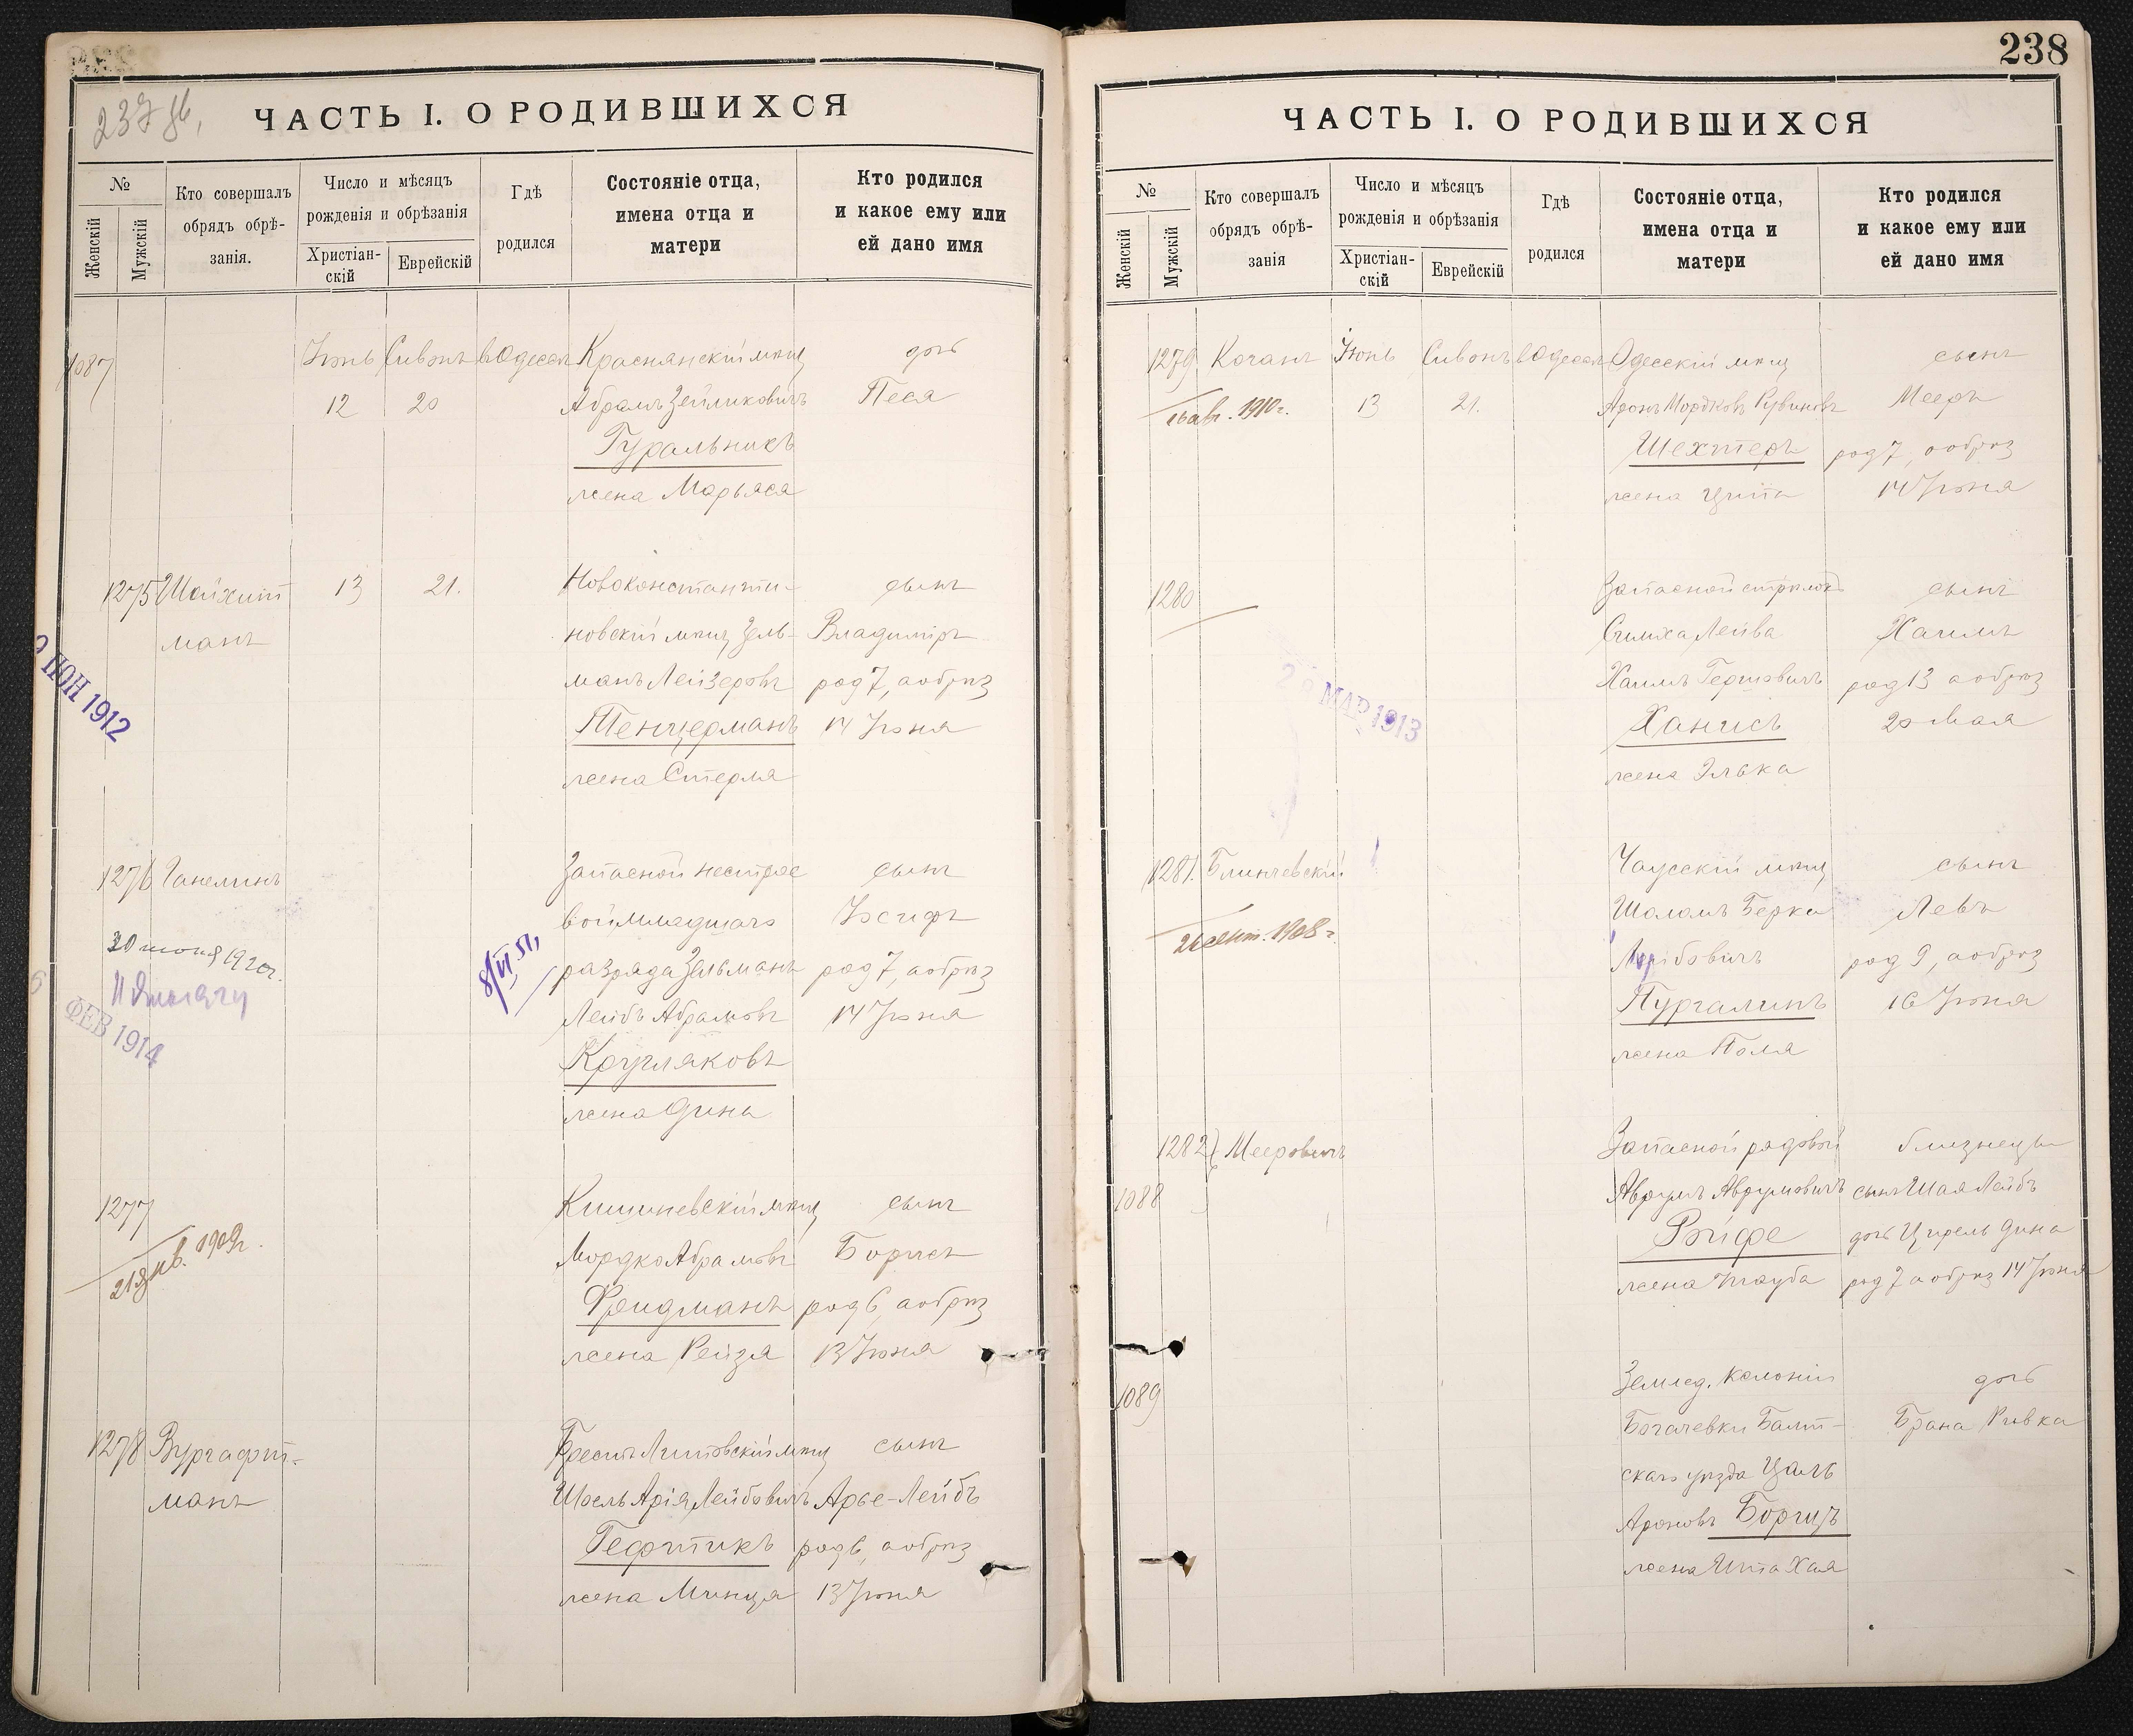 237 об.
ЧАСТЬ I. О РОДИВШИХСЯ
№
Женскій
Мужскій
Кто совершалъ
обрядъ обрѣ-
занія.
Число и мѣсяцъ
рожденія и обрѣзанія
Христіан-
скій
Еврейскій
Гдѣ
родился
Состояніе отца,
имена отца и
матери
Кто родился
и какое ему или
ей дано имя
1087 Іюнь Сивонъ въ Одессѣ Краснянскій мѣщ дочь
12 20 Абрамъ Зейликовичъ Песя
Гуральникъ
жена Марьяся
1275 Шойхит 13 21. Новоконстанти- сынъ
манъ новскій мѣщ Зель- Владиміръ
манъ Лейзеровъ род 7, а обрѣз
Тенцерманъ 14 Іюня
жена Стерля
ІЮН 1912
1276 Ганелинъ Запасной нестрое сынъ
вой младшаго Іосифъ
разряда Зельманъ род 7, а обрѣз
Лейбъ Абрамовъ 14 Іюня
Кругляковъ
жена Дина
30 июня 1920г.
8/VI 51,
ФЕВ 1914
1277 Кишиневскій мѣщ сынъ
Мордко Абрамовъ Борисъ
Фридманъ род 6, а обрѣз
жена Рейзя 13 Іюня
21 янв. 1909г.
1278 Вургафт- Брестъ Литовскій мѣщ сынъ
манъ Шоель Арія Лейбовичъ Арье-Лейбъ
Гефтикъ род 6, а обрѣз
жена Минця 13 Іюня
238
ЧАСТЬ I. О РОДИВШИХСЯ
№
Женскій
Мужскій
Кто совершалъ
обрядъ обрѣ-
занія
Число и мѣсяцъ
рожденія и обрѣзанія
Христіан-
скій
Еврейскій
Гдѣ
родился
Состояніе отца,
имена отца и
матери
Кто родился
и какое ему или
ей дано имя
1279 Коганъ Іюнь Сивонъ въ Одессѣ Одесскій мѣщ сынъ
16 авг. 1910г. 13 21. Аронъ Мордковъ Рувиновъ Мееръ
Шехтеръ род 7, а обрѣз
жена Ципа 14 Іюня
1280 Запасной стрѣлокъ сынъ
Симха Лейва Хаимъ
Хаимъ Герщовичъ род 13 а обрѣз
Ханисъ 20 Мая
жена Элька
МАР 1913
1281. Блинчевскій Чаусскій мѣщ сынъ
26 сент. 1908г. Шоломъ Берка Левъ
Лейбовичъ род 9, а обрѣз
Пургалинъ 16 Іюня
жена Поля
1282 Мееровичъ Запасной рядовой близнецы
1088 Аврумъ Аврумовичъ сынъ Шая Лейбъ
Ройфе дочь Цирель Дина
жена Тауба род 7 а обрѣз 14 Іюня
1089 Землед. колоніи дочь
Богачевки Балт- Брана Ривка
скаго уѣзда Цаль
Ароновъ Борщъ
жена Ита Хая